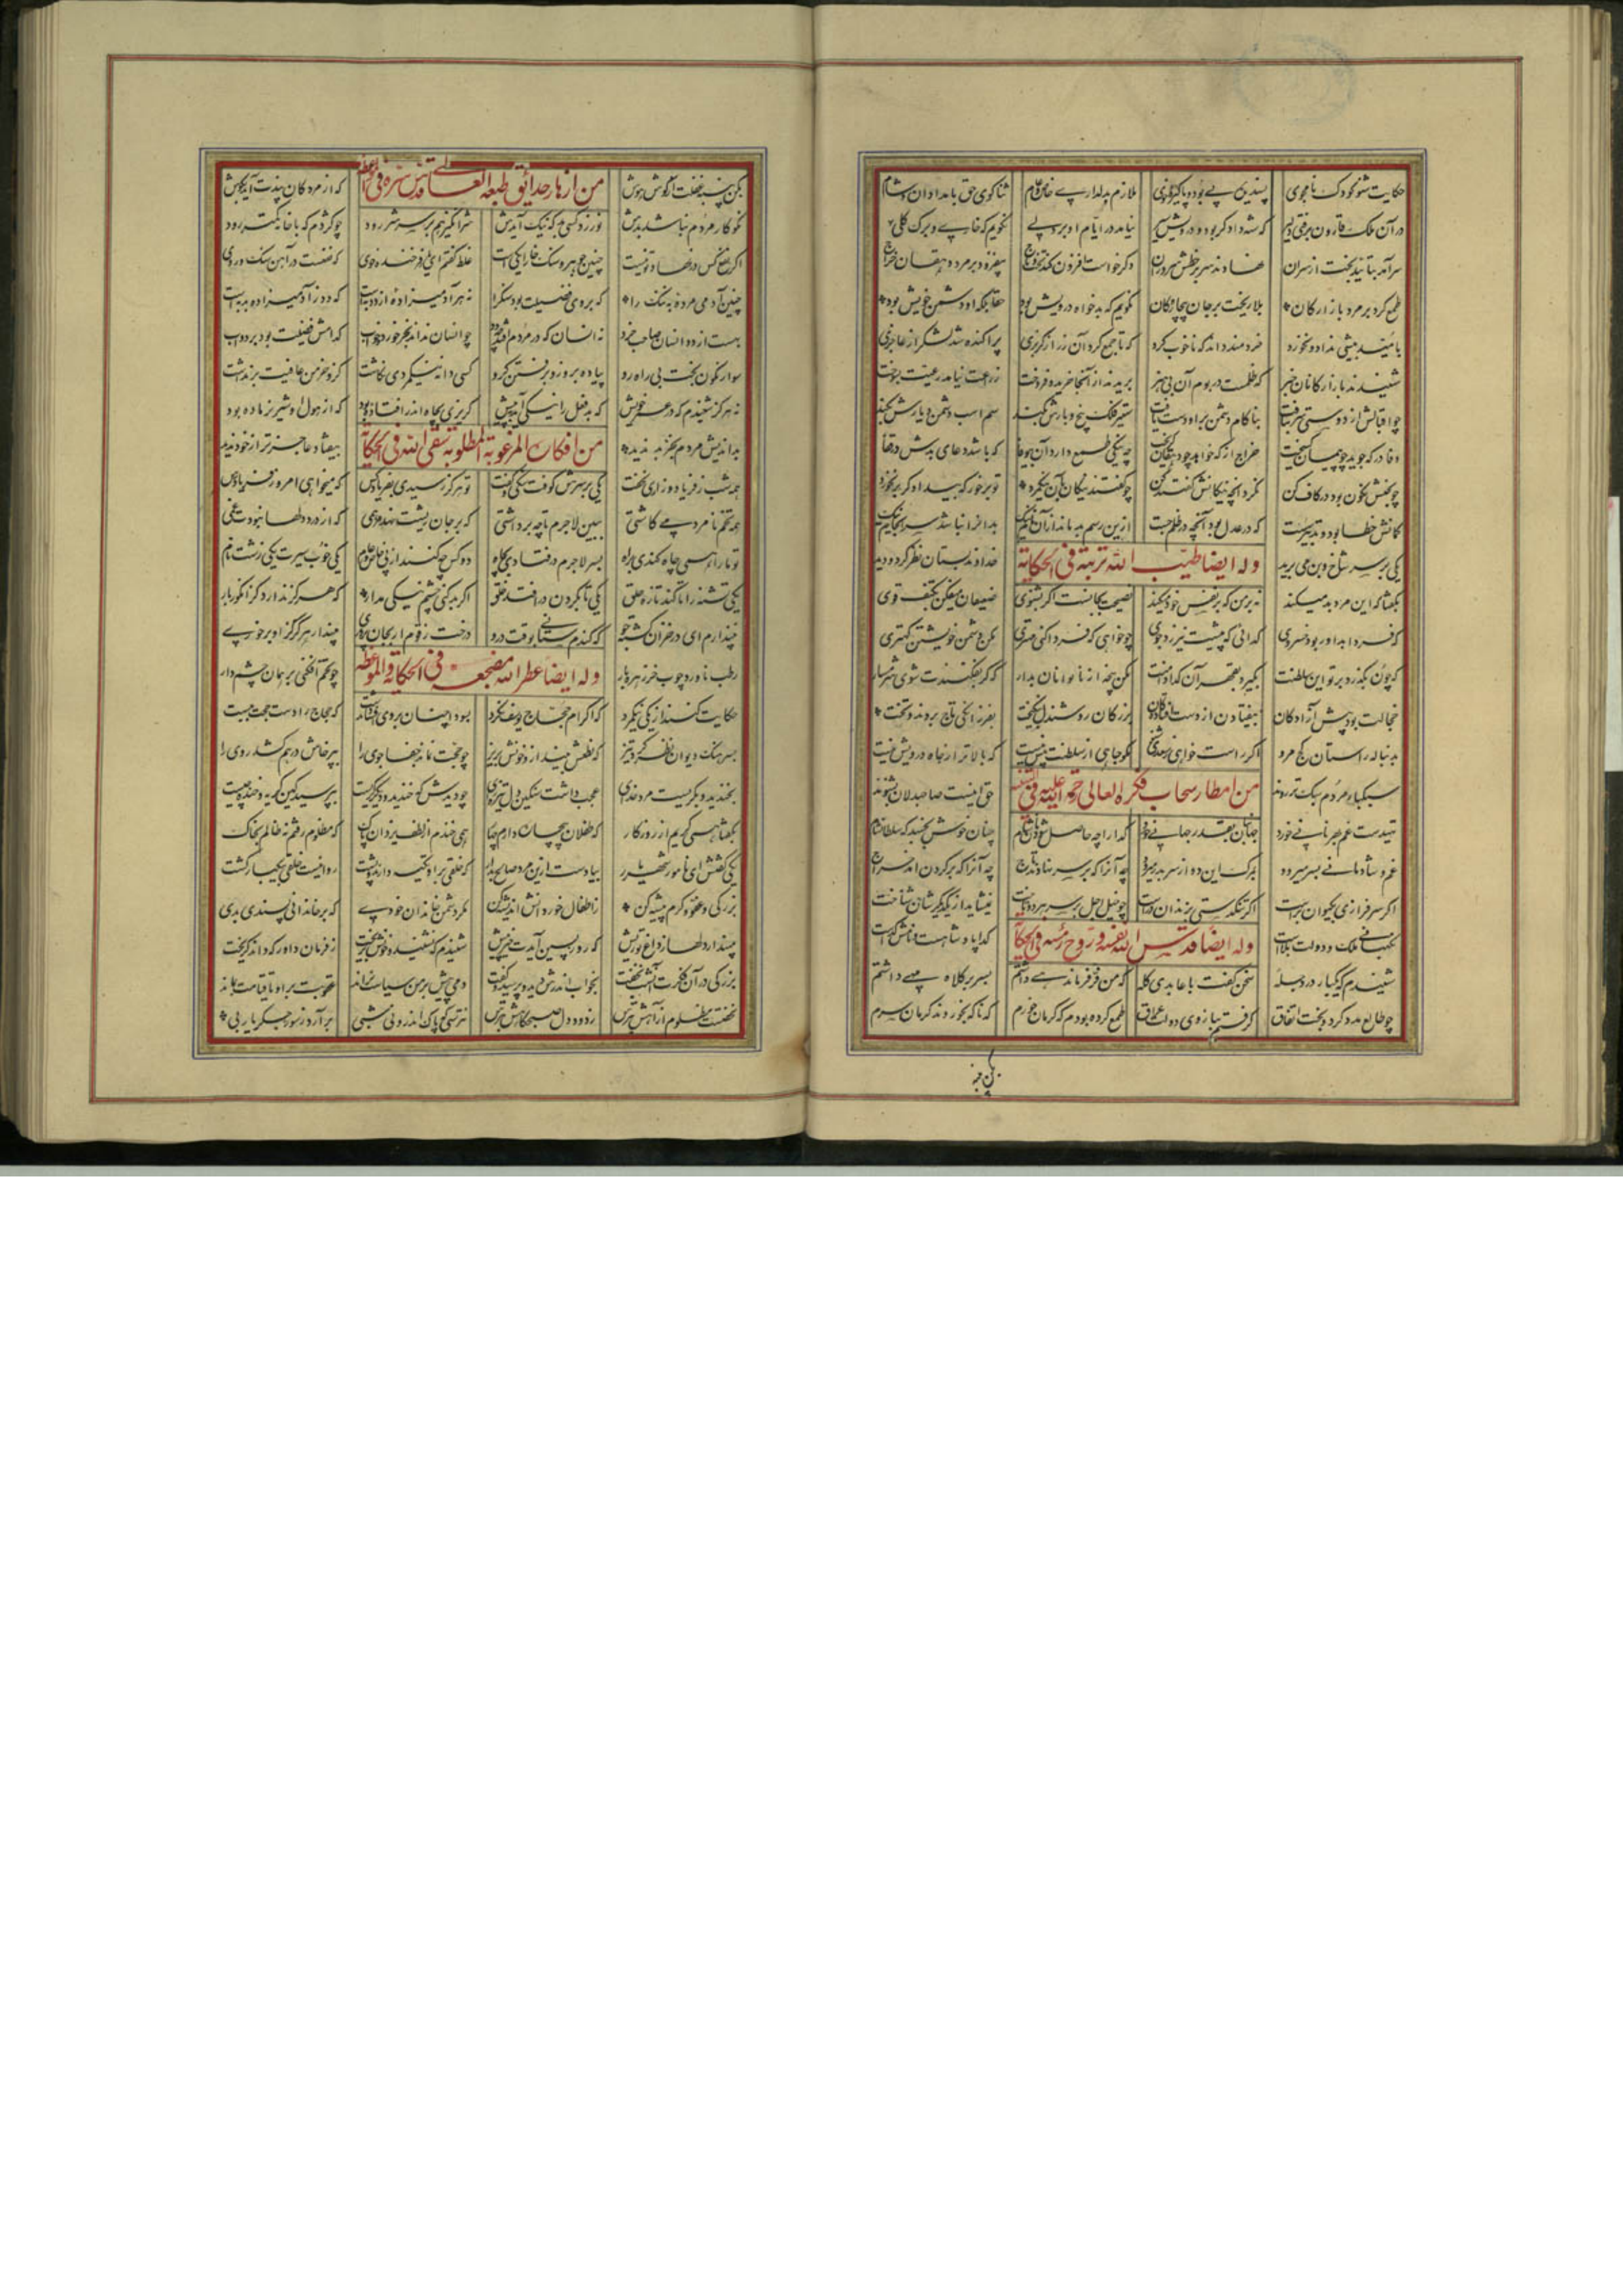 حکایت شنو کودک نامجوی پسندیده پی بود و پاکیزه خوی ملازم بدلداری خاص و عام ثناگوی حق بامدادان و شام
در آن ملک قارون برفتی دلیر که شه دادگر بود و درویش سیر نیامد در ایام او بر دلی نگویم که خاری و برگ گلی
سرآمد بتایید بخت از سران نهادند سر بر خطش سروران دگر خواست کافزون کند تخت و تاج بیفزود بر مرد دهقان خراج
طمع کرد بر مرد بازارگان بلا ریخت بر جان بیچارگان نگویم که بدخواه درویش بود حقا که او دشمن خویش بود
بامید بیشی نداد و نخورد خردمند داند که ناخوب کرد که تا جمع کرد آن زر از گربزی پراکنده شد لشکر از عاجزی
شنیدند بازارگانان خبر که ظلمست در بوم آن بی هنر بریدند از آنجا خرید و فروخت زراعت نیامد رعیت بسوخت
چو اقبالش از دوستی سر بتافت بناکام دشمن براو دست یافت ستیز فلک بیخ و بارش بکند سم اسب دشمن دیارش بکند
وفا در که جوید چو پیمان گسیخت خراج از که خواهد چو دهقان گریخت چه نیکی طمع دارد آن بیوفا که باشد دعای بدش در قفا
چو بختش نگون بود در کاف کن نکرد آنچه نیکانش گفتند کن چو گفتند نیکان بآن نیکمرد تو برخور که بیدادگر برنخورد
گمانش خطا بود و تدبیر سست که در عدل بود آنچه در ظلم جست ازین رسم بد ماند از آن نام نیک بدانرا نباشد سرانجام نیک
یکی بر سر شاخ و بن می برید وله ایضا طیب الله تربته فی الحکایة خداوند بستان نظر کرد و دید
بگفتا که این مرد بد میکند نه بر من که بر نفس خود میکند نصیحت بجا نیست اگر بشنوی ضعیفان میفکن بکتف قوی
که فردا بداور بود خسروی گدائی که پیشت نیرزد جوی چو خواهی که فردا کنی مهتری مکن دشمن خویشتن کهتری
که چون بگذرد بر تو این سلطنت بگیرد بقهر آن گدا دامنت مکن پنجه از ناتوانان بدار که گر بفکنندت شوی شرمسار
خجالت بود پیش آزادگان بیفتادن از دست افتادگان بزرگان روشندل نیکبخت بفرزانگی تاج بردند و تخت
بدنباله راستان کج مرو اگر راست خواهی ز سعدی شنو مگو جاهی از سلطنت بیش نیست که بالاتر از جاه درویش نیست
سبکبار مردم سبک تر روند من امطار سحاب فکره العالی رحمة الله علیه فی حق اینست صاحبدلان بشنوند
تهیدست غم بهر نانی خورد جهانبان بقدر جهانی خورد گدا را چو حاصل شود نان شام چنان خوش بخسپد که سلطان شام
غم و شادمانی بسر میرود بمرگ این دو از سر بدر میرود چه آنرا که بر سر نهادند تاج چه آنرا که بر گردن آمد خراج
اگر سرفرازی بکیوان برست اگر تنگدستی بزندان درست چو خیل اجل بر سر هر دو تاخت نمیشاید از یکدیگرشان شناخت
نگهبانی ملک و دولت بلاست وله ایضا قدس الله نفسه و روح رمسه فی الحکایة گدا پادشاهست و نامش گداست
شنیدم که یکبار در دجله سخن گفت با عابدی کله که من فر فرماندهی داشتم بسر بر کلاه مهی داشتم
چو طالع مدد کرد و بخت اتفاق گرفتم ببازوی دولت عراق طمع کرده بودم که کرمان خورم که ناگه بخوردند کرمان سرم
بکن پنبه
بکن پنبه غفلت از گوش هوش من ازهار حدائق طبعه العالی قدس سره فی الموعظه که از مردگان پندت آید بگوش
نکوکار مردم نباشد بدش نورزد کسی بد که نیک آیدش شر انگیز هم بر سر شر رود چو کژدم که با خانه کمتر رود
اگر نفع کس در نهاد تو نیست چنین جوهر و سنگ خارا یکیست غلط گفتم ای یار فرخنده خوی که نفعست در آهن و سنگ و روی
چنین آدمی مرده به ننگ را که بر وی فضیلت بود سنگ را نه هر آدمیزاده از دد بهست که دد ز آدمیزاده بد بهست
بهست از دد انسان صاحب خرد نه انسان که در مردم افتد چو دد چو انسان نداند بجز خورد و خواب کدامش فضیلت بود بر دواب
سوار نگون بخت بی راه رو پیاده برو زو برفتن گرو کسی دانه نیکمردی نکاشت کزو خرمن عافیت برنداشت
نه هرگز شنیدم که در عمر خویش که بدفعل را نیکی آمد به پیش گریزی بچاه اندر افتاده بود که از هول او شیر نر ماده بود
بداندیش مردم بجز بد ندید من افکار المرغوبة المطلوبة سقی الله فی الحکایة بیفتاد و عاجزتر از خود ندید
همه شب ز فریاد و زاری نخفت یکی بر سرش کوفت سنگی و گفت تو هرگز رسیدی بفریاد کس که میخواهی امروز فریادرس
همه تخم نامردمی کاشتی ببین لاجرم تا چه برداشتی که بر جان ریشت نهد مرهمی که از درد دلها نبودت غمی
تو ما را همی چاه کندی براه بسر لاجرم درفتادی بچاه دو کس چه کنند از پی خاص و عام یکی خوب سیرت یکی زشت نام
یکی تشنه را تا کند تازه حلق یکی تا بگردن درافتند خلق اگر بد کنی چشم نیکی مدار که هرگز نیارد گز انگور بار
نپندارم ای در خزان کشته جو که گندم ستانی بوقت درو درخت زقوم ار بجان پروری مپندار هرگز کزو بر خوری
رطب ناورد چوب خرزهره بار وله ایضا عطر الله مضجعه فی الحکایة و الموعظه چو تخم افکنی بر همان چشم دار
حکایت کنند از یکی نیکمرد که اکرام حجاج یوسف نکرد بدو آنچنان بروی که حجاج را دست حجت ببست
بسرهنگ دیوان نظر کرد تیز که نطعش بینداز و خونش بریز چو حجت نماند جفاجوی را بپرخاش درهم کشد روی را
بخندید و بگریست مرد خدای عجب داشت سنگین دل تیره رای چو دیدش که خندید و دیگر گریست بپرسید کین گریه و خنده چیست
بگفتا همی گریم از روزگار که طفلان بیچاره دارم چهار همی خندم از لطف یزدان پاک که مظلوم رفتم نه ظالم بخاک
یکی گفتش ای نامور شهریار بیا دست ازین مرد صالح بدار که خلقی بر او تکیه دارند و پشت روا نیست خلقی بیکبار کشت
بزرگی و عفو و کرم پیشه کن ز اطفال خوردانش اندیشه کن مگر دشمن خاندان خودی که بر خاندانی پسندی بدی
مپندار دلها ز داغ تو ریش که روز پسین آیدت خیر پیش شنیدم که نشنید و خونش بریخت ز فرمان داور که داند گریخت
بزرگی در آن فکرت آنشب بخفت بخواب اندرش دید و پرسید و گفت دمی بیش بر من سیاست نراند عقوبت براو تا قیامت بماند
نخفتست مظلوم از آهش بترس ز دود دل صبحگاهش بترس نترسی که پاک اندرونی شبی برآرد ز سوز جگر یا ربی